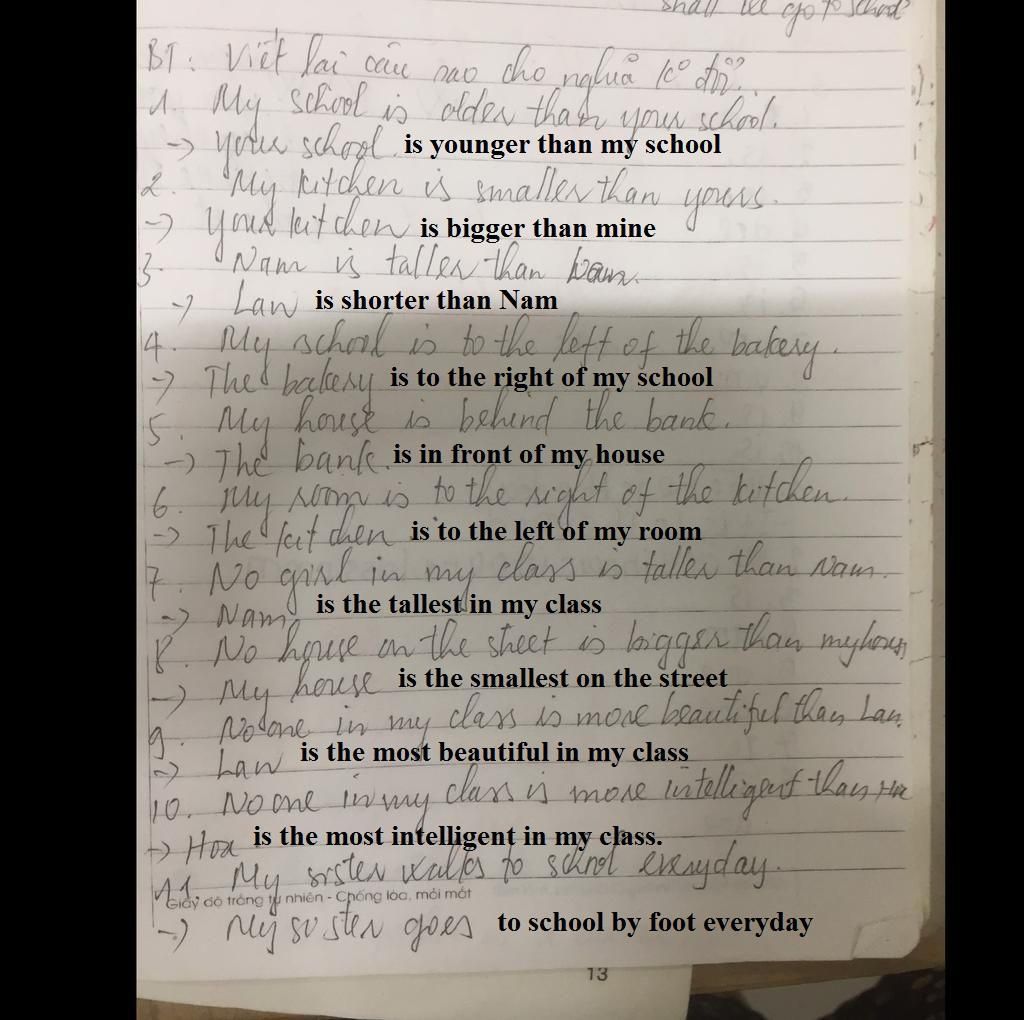 shall we go to school
BT: Viết lại câu sao cho nghĩa ko đổi.
1. My school is older than your school.
-> Your school is younger than my school
2. My kitchen is smaller than yours.
-> Your kitchen is bigger than mine
3. Nam is taller than
-> Lan is shorter than Nam
4. My school is to the left of the bakery.
-> The bakery is to the right of my school
5. My house is behind the bank.
-> The bank is in front of my house
6. My room is to the right of the kitchen.
-> The kitchen is to the left of my room
7. No girl in my class is taller than Nam.
-> Nam is the tallest in my class
8. No house on the street is bigger than my house
-> My house is the smallest on the street
9. No one in my class is more beautiful than Lan.
-> Lan is the most beautiful in my class
10. No one in my class is more intelligent than Hoa
-> Hoa is the most intelligent in my class.
11. My sister walks to school everyday.
Giấy có độ trắng tự nhiên - Chống lóa, mỏi mắt
-> My sister goes to school by foot everyday
13